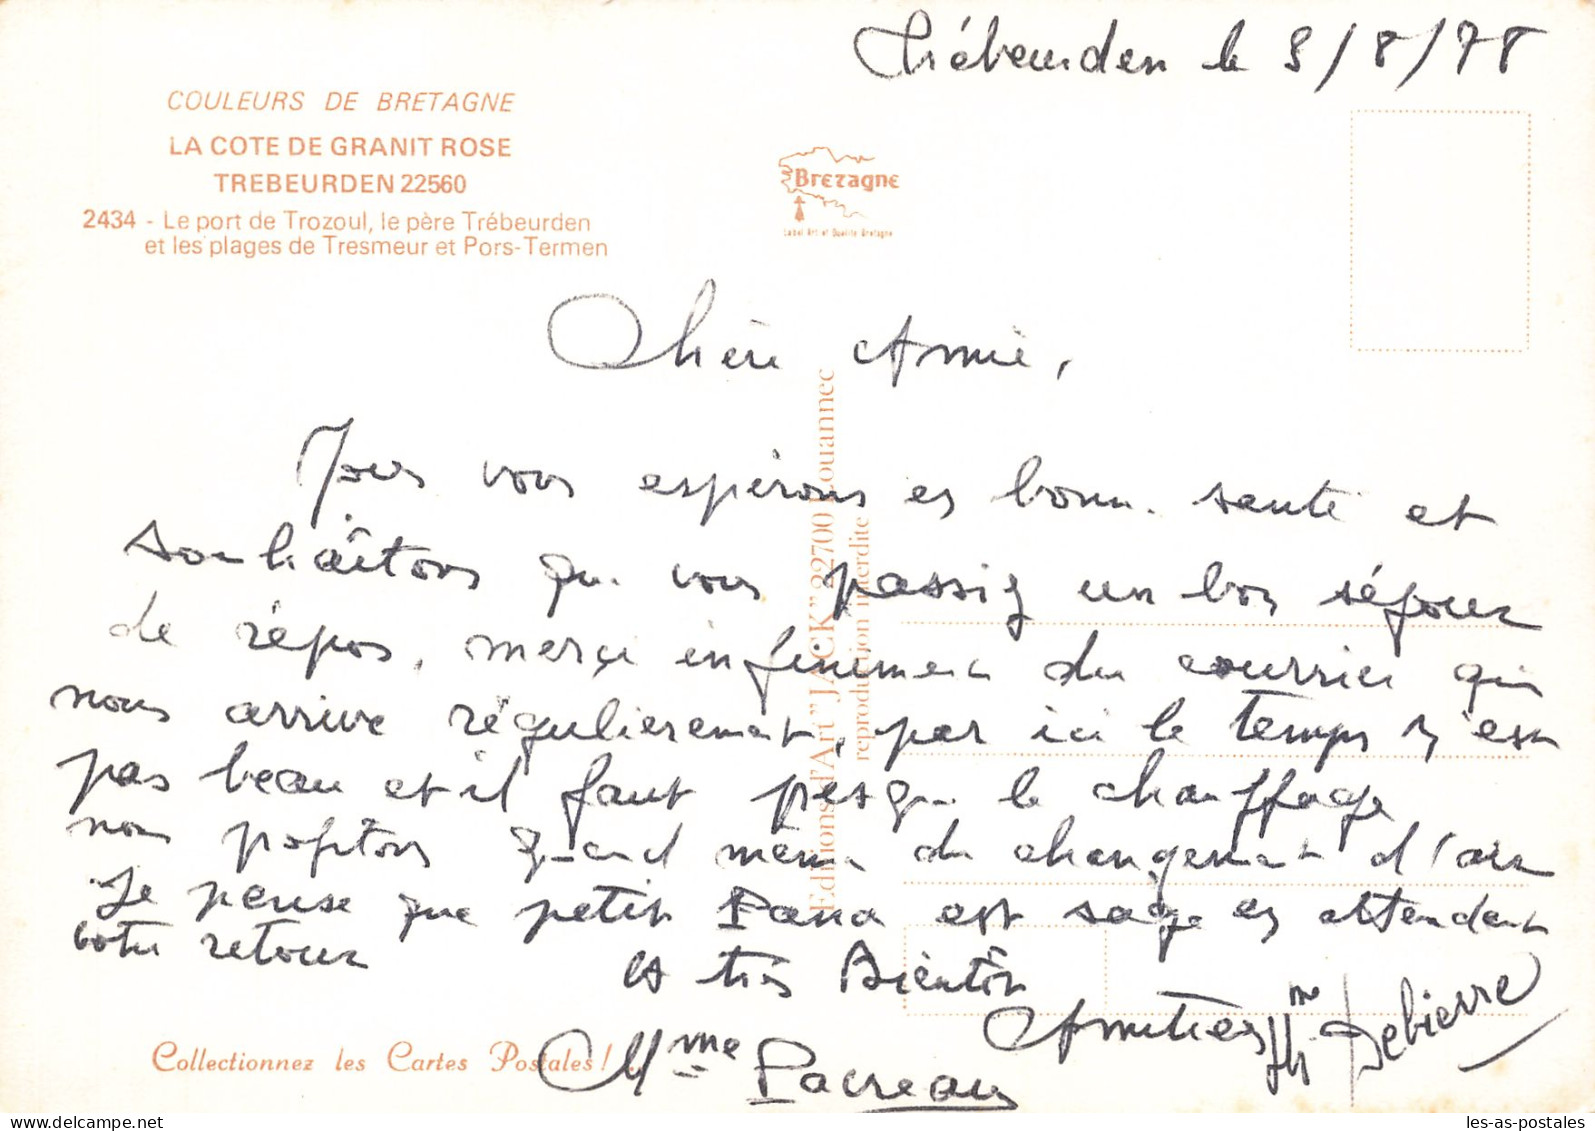 Trébeurden le 9/8/78
COULEURS DE BRETAGNE
LA COTE DE GRANIT ROSE
TREBEURDEN 22560
2434 - Le port de Trozoul, le père Trébeurden
et les plages de Tresmeur et Pors-Termen
Bretagne
Label Art et Qualité Bretagne
Chère Amie,
Nous vous espérons en bonne santé et
souhaitons que vous passiez un bon séjour
de répos, merci infiniment du courrier qui
nous arrive régulierement, par ici le temps n'est
pas beau et il faut presque le chauffage
nous profitons quand même du changement d'air
Je pense que petit est sage en attendant
votre retour
et très Bientôt
Amitiés
Mme Debierre
Mme Pacreau
Editions d'Art "JACK" 22700 Louannec
reproduction interdite
Collectionnez les Cartes Postales!...
les-as-postales.com